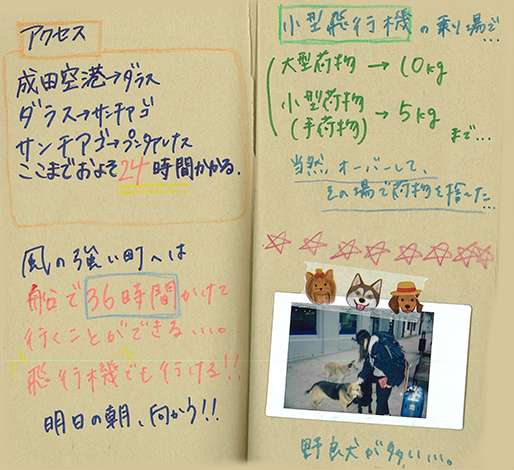 アクセス
成田空港→ダラス
ダラス→サンチアゴ
サンチアゴ→プンタアレナス
ここまでおよそ24時間かかる.
風の強い町へは
船で36時間かけて
行くことができるらしい。
飛行機でも行ける!!
明日の朝、向かう!!
小型飛行機の乗り場で…
大型荷物 → 10kg
小型荷物 → 5kg
(手荷物)
まで…
当然、オーバーして、
その場で荷物を捨てた…
野良犬が多いい。